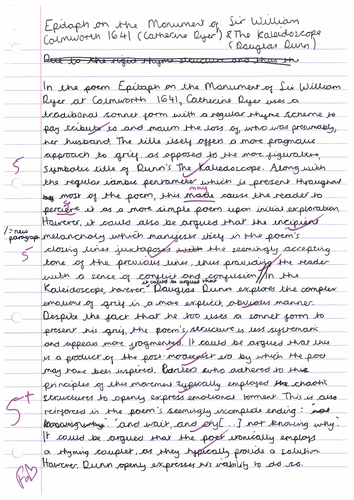 Epitaph on the Monument of Sir William
Colmworth 1641 (Catherine Dyer) & The Kaleidoscope
(Douglas Dunn)
Due to the rigid rhyme structure and that th
In the poem Epitaph on the Monument of Sir William
Dyer at Colmworth 1641, Catherine Dyer uses a
traditional sonnet form with a regular rhyme scheme to
pay tribute to and mourn the loss of, who was presumably,
her husband. The title itself offers a more pragmatic
approach to grief, as opposed to the more figurative,
5 symbolic title of Dunn's The Kaleidoscope. Along with
the regular iambic pentameter which is present throughout
most of the poem, this may cause the reader to
percieve it as a more simple poem upon initial exploration
However, it could also be argued that the incipient
// = new paragraph melancholy which manifests itself in the poem's
5 closing lines juxtaposes with the seemingly accepting
tone of the previous lines, thus providing the reader
with a sense of conflict and confusion. // In the
Kaleidoscope, however, it could be argued that Douglas Dunn explores the complex
emotions of grief in a more explicit, obvious manner.
Despite the fact that he too uses a sonnet form to
present his grief, the poem's structure is less systematic
and appears more fragmented. It could be argued that this
is a product of the post modernist era by which the poet
may have been inspired. Writers who adhered to the
principles of this movement typically employed chaotic
5+ structures to openly express emotional torment. This is also
reinforced in the poem's seemingly incomplete ending: "not
knowing why" 'and wait, and cry[...] not knowing why.'
It could be argued that the poet ironically employs
a rhyming couplet, as they typically provide a solution
However, Dunn openly expresses his inability to do so.